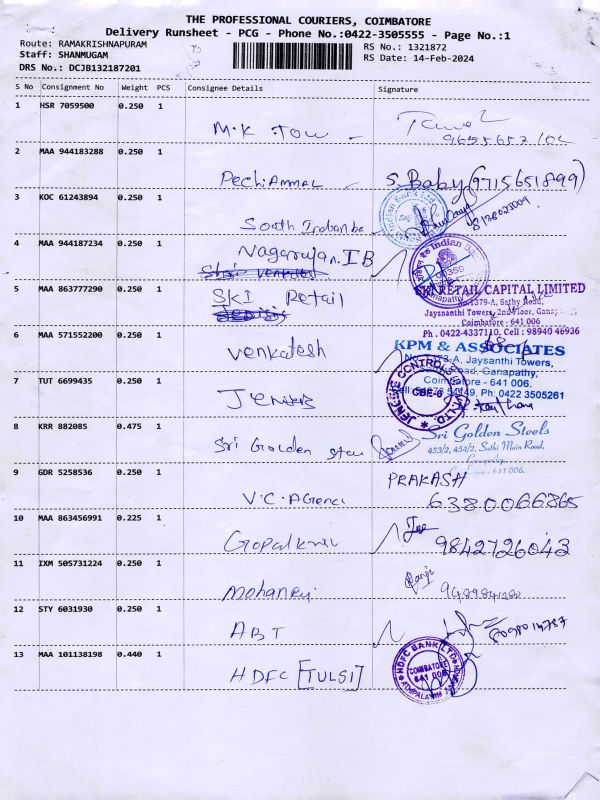 THE PROFESSIONAL COURIERS, COIMBATORE
Delivery Runsheet - PCG - Phone No.:0422-3505555 - Page No.:1
Route: RAMAKRISHNAPURAM
Staff: SHANMUGAM
DRS No.: DCJB132187201
RS No.: 1321872
RS Date: 14-Feb-2024
S No Consignment No Weight PCS Consignee Details Signature
1 HSR 7059500 0.250 1
M.K Tow
2 MAA 944183288 0.250 1
PechiAmmal S. Baby (9715651899)
3 KOC 61243894 0.250 1
South
4 MAA 944187234 0.250 1
Nagarajan. IB
5 MAA 863777290 0.250 1
SKI Retail
SKI RETAIL CAPITAL LIMITED
No.1379-A, Sathy Road,
Jaysanthi Towers, 2nd Floor,
Coimbatore - 641 006
Ph. 0422-4337110, Cell : 98940 46936
6 MAA 571552200 0.250 1
Venkatesh
KPM & ASSOCIATES
Jaysanthi Towers,
Road, Ganapathy,
Coimbatore - 641 006.
Ph: 0422 3505261
7 TUT 6699435 0.250 1
CBE-6
8 KRR 882085 0.475 1
Sri Golden
Sri Golden Steels
453/2, 454/2, Sathi Main Road,
641 006.
9 GDR 5258536 0.250 1
V.C. Agenci
PRAKASH
6380066865
10 MAA 863456991 0.225 1
9842726043
11 IXM 505731224 0.250 1
12 STY 6031930 0.250 1
ABT
13 MAA 101138198 0.440 1
HDFC [TULSI]
HDFC BANK LTD
COIMBATORE
641 006